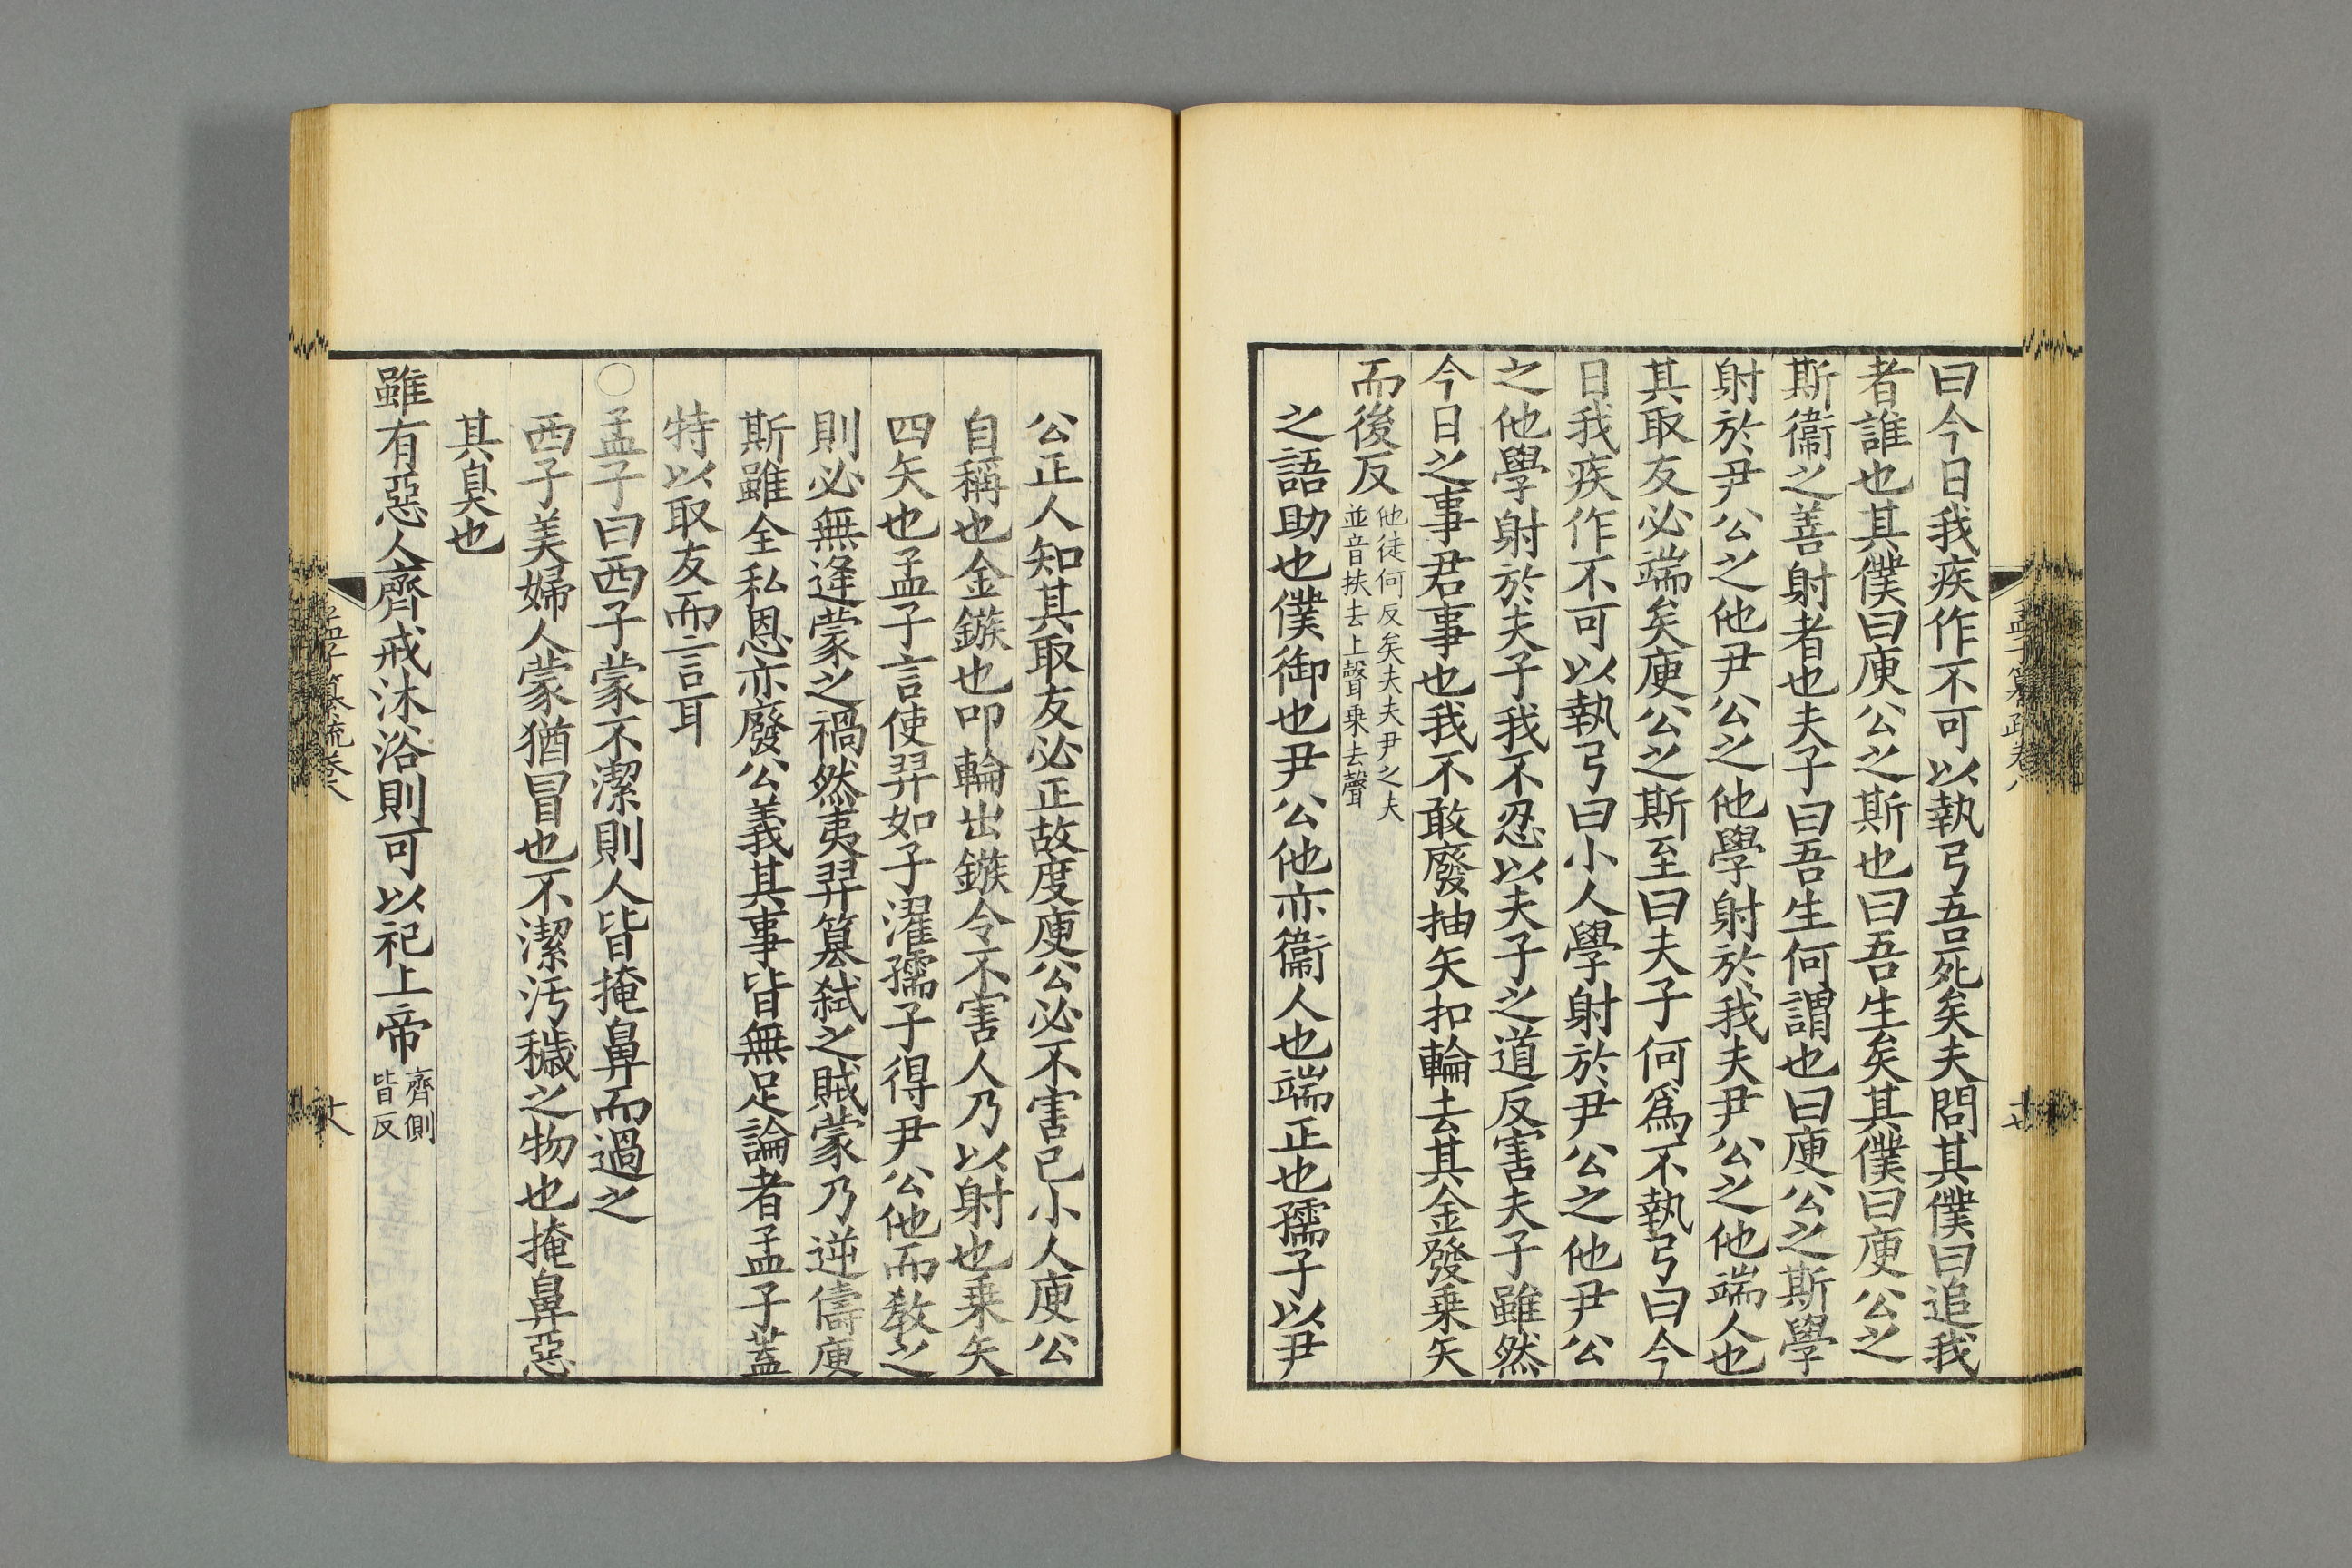 曰今日我疾作不可以執弓吾死矣夫問其僕曰追我
者誰也其僕曰庾公之斯也曰吾生矣其僕曰庾公之
斯衞之善射者也夫子曰吾生何謂也曰庾公之斯學
射於尹公之他尹公之他學射於我夫尹公之他端人也
其取友必端矣庾公之斯至曰夫子何爲不執弓曰今
日我疾作不可以執弓曰小人學射於尹公之他尹公
之他學射於夫子我不忍以夫子之道反害夫子雖然
今日之事君事也我不敢廢抽矢扣輪去其金發乗矢
而後反
他徒何反矣夫夫尹之夫
並音扶去上聲乗去聲
之語助也僕御也尹公他亦衞人也端正也孺子以尹
公正人知其取友必正故度庾公必不害己小人庾公
自稱也金鏃也叩輪出鏃令不害人乃以射也乗矢
四矢也孟子言使羿如子濯孺子得尹公他而敎之
則必無逄蒙之禍然夷羿簒弑之賊蒙乃逆儔庾
斯雖全私恩亦廢公義其事皆無足論者孟子蓋
特以取友而言耳
○孟子曰西子蒙不潔則人皆掩鼻而過之
西子美婦人蒙猶冒也不潔汚穢之物也掩鼻惡
其臭也
雖有惡人齊戒沐浴則可以祀上帝
齊側
皆反
孟子簒疏卷八